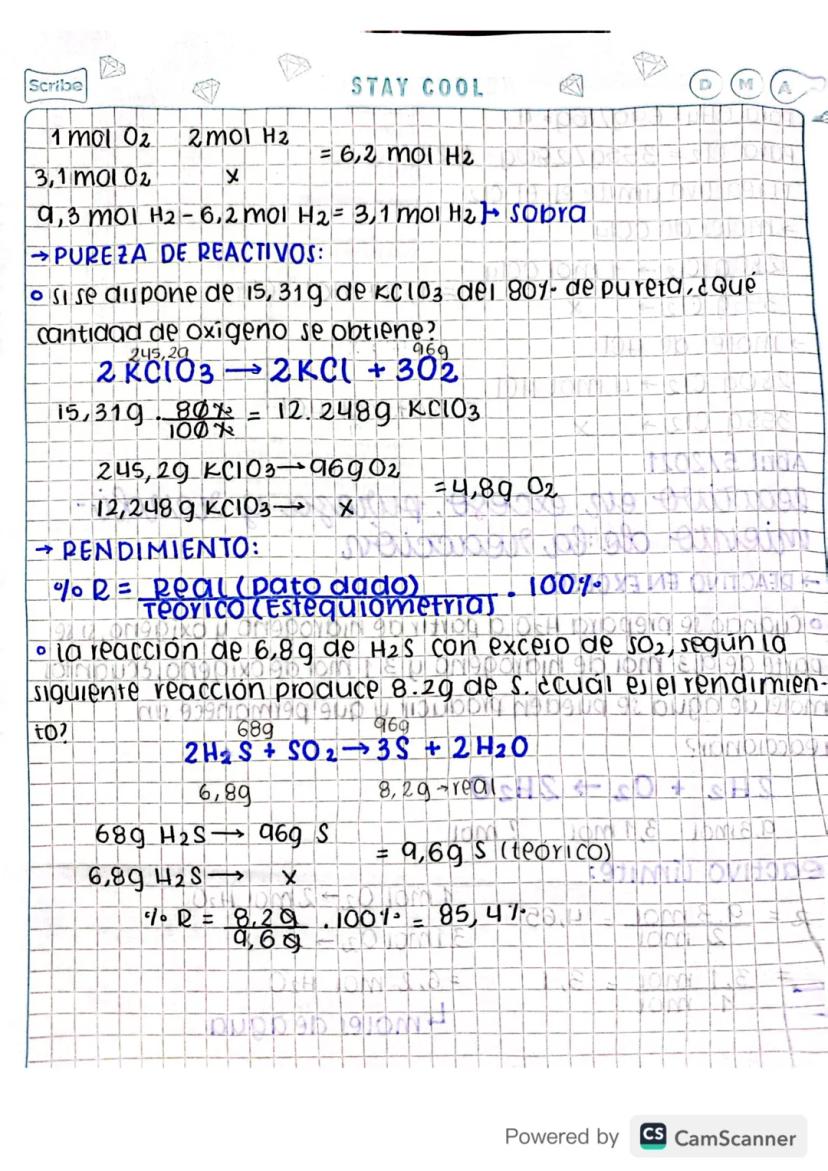 Scribe STAY COOL D M A
1 mol O2 2 mol H2
= 6,2 mol H2
3,1 mol O2 x
9,3 mol H2 - 6,2 mol H2 = 3,1 mol H2 }→ sobra
→ PUREZA DE REACTIVOS:
° si se dispone de 15,31g de KClO3 del 80% de pureza, ¿Qué
cantidad de oxigeno se obtiene?
245,2g 96g
2 KClO3 → 2 KCl + 3O2
15,31g . 80% / 100% = 12.248g KClO3
245,2g KClO3 → 96g O2
= 4,8g O2
12,248 g KClO3 → x
→ RENDIMIENTO:
% R = Real (Dato dado) / Teórico (Estequiometria) . 100%
° la reacción de 6,8g de H2S con exceso de SO2, según la
siguiente reacción produce 8.2g de S. ¿cuál es el rendimien-
to?
68g 96g
2H2S + SO2 → 3S + 2H2O
6,8g 8,2g → real
68g H2S → 96g S
= 9,6g S (teórico)
6,8g H2S → x
% R = 8,2g / 9,6g . 100% = 85,4%
Powered by CS CamScanner